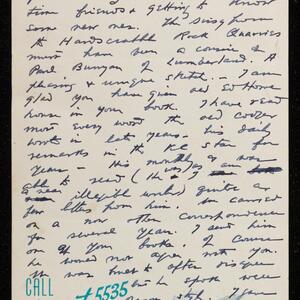 time friends & getting to know
some new ones. The
to Hardscrabble Rock Quarries
must have been a cousin of
Paul Bunyan of Lumberland. A
pleasing & unique sketch. — I am
glad you have given old Ed Howe
house in your book. I have read
most every word the old
wrote in late years — his daily
remarks in the KC Star for
years — His monthly as
able to read (
illegible works) quite a
few letters from him. We carried
on a correspondence
for several years. I sent him
one of your books. Of course
he would not agree with you.
but he spoke well
CALL
#5535